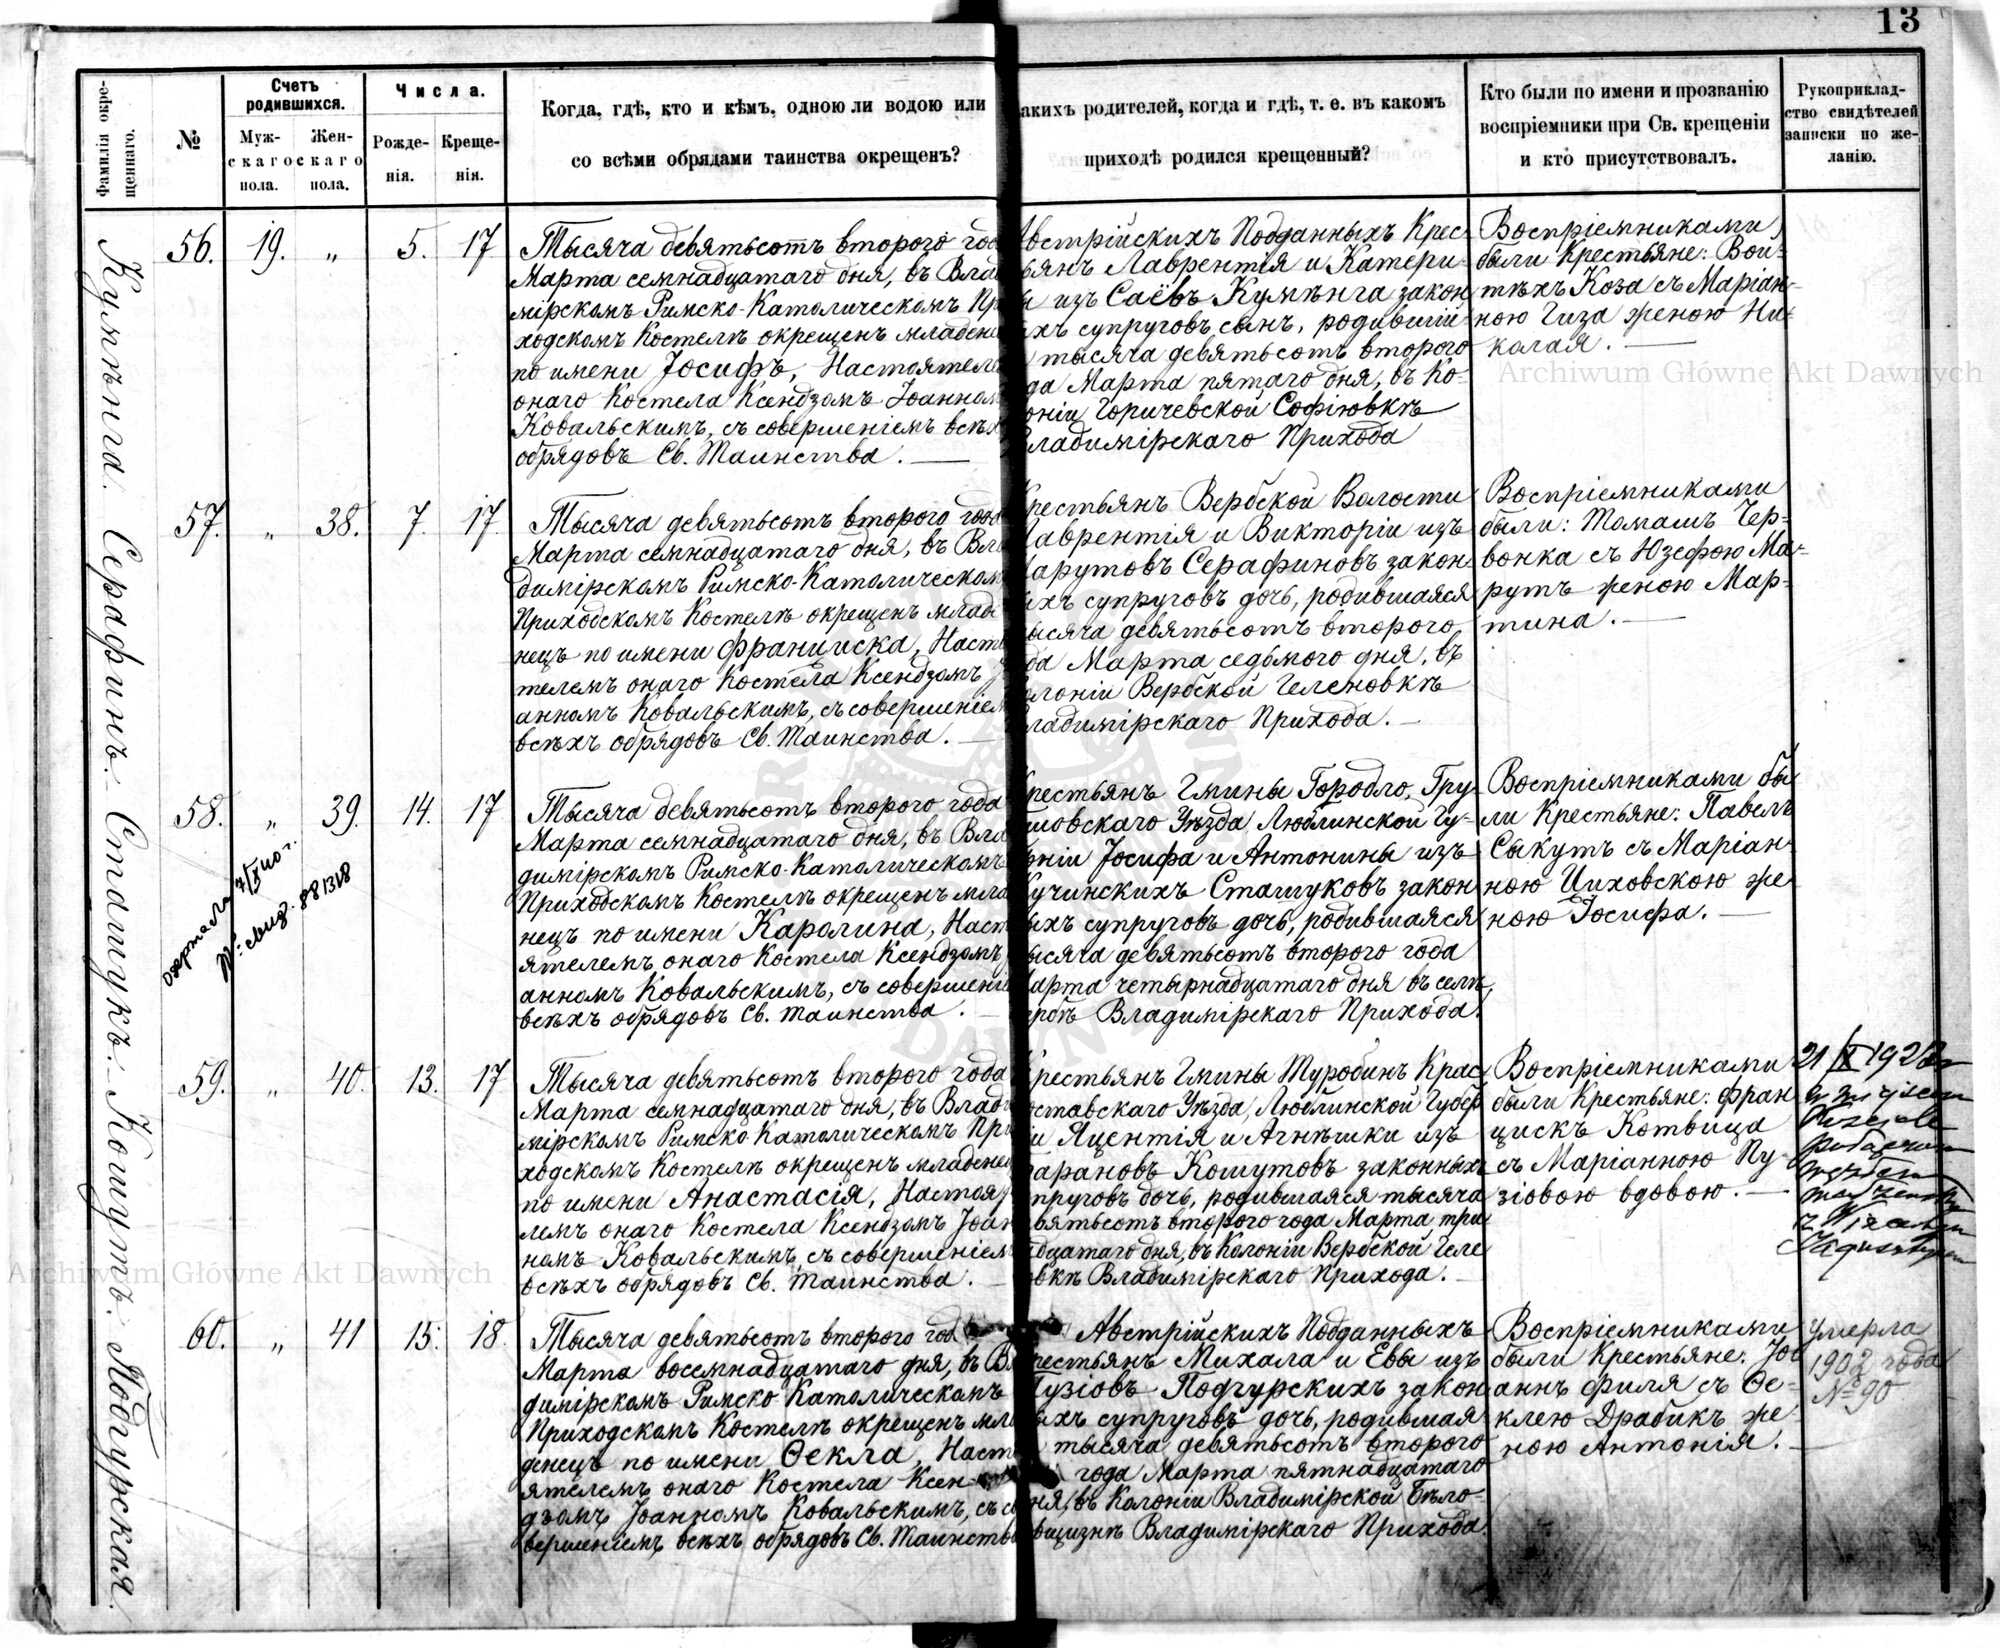 13
Фамилія окре-
щеннаго.
№
Счетъ
родившихся.
Муж-
скаго
пола.
Жен-
скаго
пола.
Числа.
Рожде-
нія.
Креще-
нія.
Когда, гдѣ, кто и кѣмъ, одною ли водою или
со всѣми обрядами таинства окрещенъ?
акихъ родителей, когда и гдѣ, т. е. въ какомъ
приходѣ родился крещенный?
Кто были по имени и прозванію
воспріемники при Св. крещеніи
и кто присутствовалъ.
Рукоприклад-
ство свидѣтелей
записки по же-
ланію.
Кумѣнга.
56. 19. „ 5. 17
Тысяча девятьсотъ второго год
Марта семнадцатаго дня, въ Влад
мірскомъ Римско-Католическомъ Пр
ходскомъ Костелѣ окрещенъ младене
по имени Іосифъ, Настоятеле
онаго Костела Ксендзомъ Іоанном
Ковальскимъ, съ совершеніемъ всѣх
обрядовъ Св. Таинства.
Австрійскихъ Подданныхъ Крес-
ьянъ Лаврентія и Катери-
ы изъ Саёвъ Кумѣнга закон
ыхъ супруговъ сынъ, родившій
тысяча девятьсотъ второго
да Марта пятаго дня, въ Ко-
оніи Горичевской Софіювкѣ
ладимірскаго Прихода
Воспріемниками
были Крестьяне: Вои-
тѣхъ Коза съ Маріан-
ною Гиза женою Ни-
колая.
Archiwum Główne Akt Dawnych
Серафинъ.
57. „ 38. 7. 17.
Тысяча девятьсотъ второго года
Марта семнадцатаго дня, въ Вла
димірскомъ Римско-Католическом
Приходскомъ Костелѣ окрещенъ млад
нецъ по имени Франциска, Наст
телемъ онаго Костела Ксендзомъ І
анномъ Ковальскимъ, съ совершеніем
всѣхъ обрядовъ Св. Таинства.
рестьянъ Вербской Волости
Лаврентія и Викторіи изъ
Марутовъ Серафиновъ закон
ыхъ супруговъ дочь, родившаяся
ысяча девятьсотъ второго
ода Марта седьмого дня, въ
олоніи Вербской Геленовкѣ
ладимірскаго Прихода.
Воспріемниками
были: Томашъ Чер-
вонка съ Юзефою Ма-
рутъ женою Мар-
тина.
Сташукъ.
58. „ 39. 14. 17
№: свид. 881318
Тысяча девятьсотъ второго года
Марта семнадцатаго дня, въ Вла
димірскомъ Римско-Католическомъ
Приходскомъ Костелѣ окрещенъ мла
нецъ по имени Каролина, Наст
ятелемъ онаго Костела Ксендзомъ
анномъ Ковальскимъ, съ совершені
всѣхъ обрядовъ Св. Таинства.
рестьянъ Гмины Городло, Гру
шовскаго Уѣзда Люблинской Гу-
рніи Іосифа и Антонины изъ
Кучинскихъ Сташуковъ закон
ыхъ супруговъ дочь, родившаяся
ысяча девятьсотъ второго года
арта четырнадцатаго дня въ селѣ
ербѣ Владимірскаго Прихода.
Воспріемниками бы
ли Крестьяне: Павелъ
Сыкутъ съ Маріан-
ною Циховскою же
ною Іосифа.
Кошутъ.
59. „ 40. 13. 17
Тысяча девятьсотъ второго года
Марта семнадцатаго дня, въ Влади
мірскомъ Римско-Католическомъ При
ходскомъ Костелѣ окрещенъ младене
по имени Анастасія, Настоя
лемъ онаго Костела Ксендзомъ Іоан
номъ Ковальскимъ, съ совершеніем
всѣхъ обрядовъ Св. Таинства.
рестьянъ Гмины Туробинъ Крас
оставскаго Уѣзда, Люблинской Губер
іи Яцентія и Агнѣшки изъ
арановъ Кошутовъ законныхъ
упруговъ дочь, родившаяся тысяча
евятьсотъ второго года Марта три
адцатаго дня, въ Колоніи Вербской Геле
овкѣ Владимірскаго Прихода.
Воспріемниками
были Крестьяне: Фран
цискъ Котвица
съ Маріанною Пу-
зіовою вдовою.
Archiwum Główne Akt Dawnych
Подгурская.
60. „ 41 15. 18.
Тысяча девятьсотъ второго год
Марта восемнадцатаго дня, въ Вл
димірскомъ Римско-Католическомъ
Приходскомъ Костелѣ окрещенъ мла
денецъ по имени Ѳекла, Наст
ятелемъ онаго Костела Ксен-
дзомъ Іоанномъ Ковальскимъ, съ со
вершеніемъ всѣхъ обрядовъ Св. Таинства
Австрійскихъ Подданныхъ
рестьянъ Михала и Евы изъ
Пузіовъ Подгурскихъ закон
ыхъ супруговъ дочь, родившая
тысяча девятьсотъ второго
года Марта пятнадцатаго
ня, въ Колоніи Владимірской Бѣло-
вщизнѣ Владимірскаго Прихода.
Воспріемниками
были Крестьяне: Іо
аннъ Филя съ Ѳе-
клею Драбикъ же-
ною Антонія.
Умерла
1902 года
№ 90